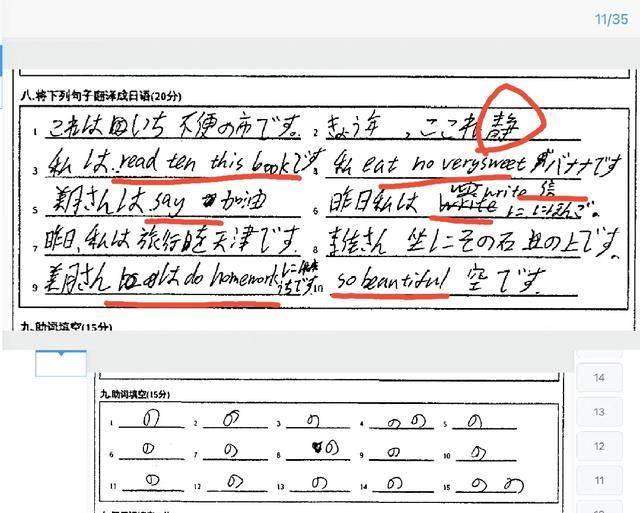 11/35
八.将下列句子翻译成日语(20分)
1 これは いち 不便の市です。 2 きょう年 、ここれ 静
3 私 は read ten this bookです 4 私 eat no verysweet バナナです
5 美月さんは say 加油 6 昨日私は write 信 にほんご。
7 昨日、私は 旅行 天津です. 8 李佳さん 坐 にその石 の上です.
9 美月さん は do homework うちです. 10 so beautiful 空 です.
九.助词填空(15分)
14
九.助词填空(15分)
1 の 2 の 3 の 4 の の 5 の
13
6 の 7 の 8 の 9 の 10 の
12
11 の 12 の 13 の 14 の 15 の の
11